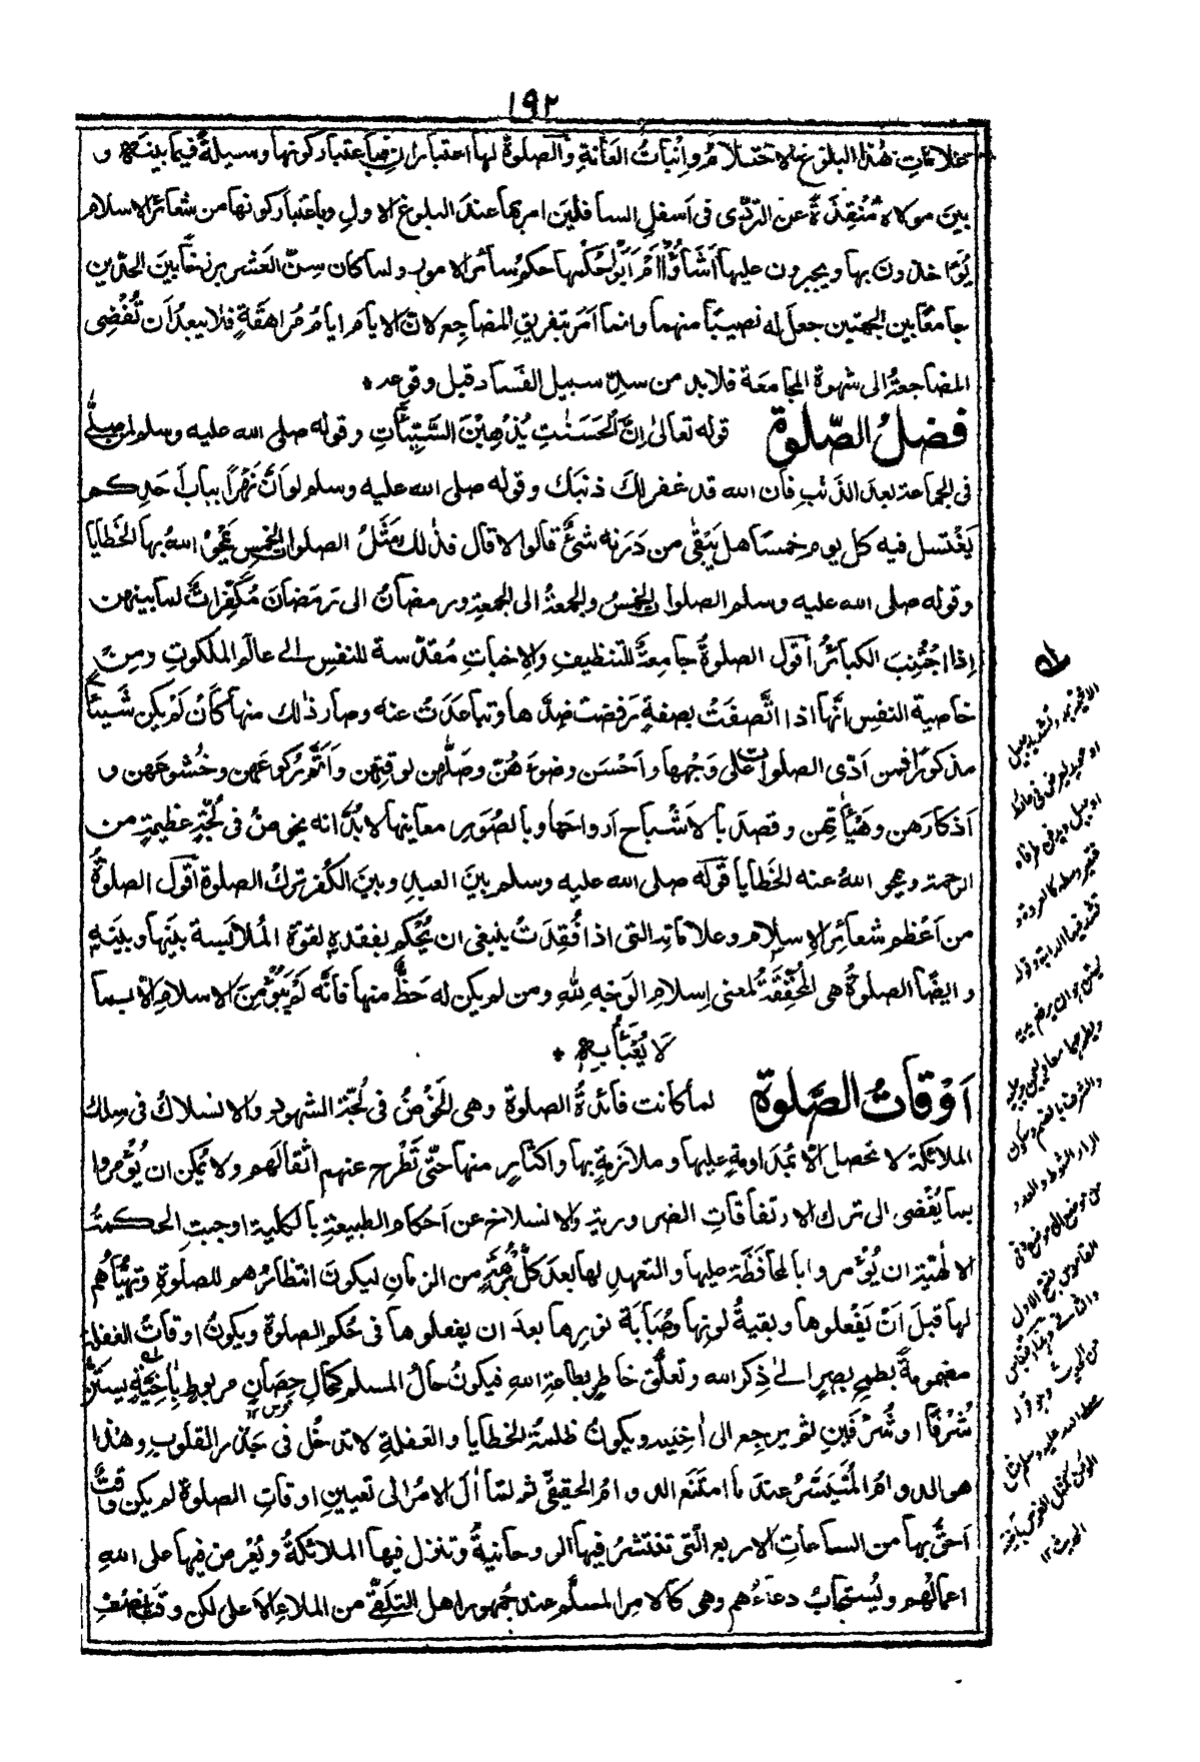 ١٩٢
علامات هذا البلوغ الاحتلام وانبات العانة والصلوة لها اعتباران فباعتبار كونها وسيلة فيما بينه و
بين مولاه مُنقِذة عن التردّى فى اسفل السافلين امر بها عند البلوغ الاول وباعتبار كونها من شعائر الاسلام
يُؤاخذون بها ويجبرون عليها اشاؤا ام ابوا حكمها حكم سائر الامور ولما كان سن العشر برزخا بين الحدين
جامعًا بين الجهتين جعل له نصيبًا منهما وانما امر بتفريق المضاجع لان الايام ايام مراهقة فلا يبعد ان تُفضى
المضاجعة الى شهوة المجامعة فلابد من سد سبيل الفساد قبل وقوعه ٭
فضل الصّلوة قوله تعالىٰ اِنَّ الْحَسَنٰتِ يُذْهِبْنَ السَّيِّئَاتِ وقوله صلى الله عليه وسلم لمن صلّى
فى الجماعة بعد الذنب فان الله قد غفر لك ذنبك وقوله صلى الله عليه وسلم لو اَنَّ نَهْرًا بباب اَحَدِكم
يَغْتسل فيه كل يوم خمسًا هل يَبْقٰى من دَرَنه شئٌ قالوا لا قال فذلك مَثَلُ الصلوات الخمس يمحو اللهُ بها الخَطايا
وقوله صلى الله عليه وسلم الصلوات الخمسُ والجمعةُ الى الجمعةِ ورمضانُ الى رمضانَ مُكَفِّراتٌ لما بينهن
اِذا اجتُنِبَ الكبائرُ اقول الصلوةُ جامِعةٌ للتنظيف والاِخباتِ مُقدّسة للنفس الى عالَم الملكوتِ ومِن
خاصية النفسِ انَّها اذا اتَّصفَتْ بصفةٍ رفضت ضِدَّها وتباعَدَتْ عنه وصار ذٰلك منها كاَنْ لَمْ يكن شَيئًا
مذكورًا فمن ادّى الصلوات على وَجْهها واَحْسَن وضوءَهُنّ وصَلّاهن لوقتِهن واَتَمَّ ركوعَهن وخُشوعَهن و
اَذكارَهن وهَيْئاتِهن وقصد بالاَشْباح اَرواحَها وبالصُوَر معانيها لابُدَّ انه يخوضُ فى لُجّةٍ عظيمةٍ من
الرحمة ويمحو اللهُ عنه الخَطايا قَوْله صلى الله عليه وسلم بينَ العبدِ وبينَ الكُفرِ تركُ الصلوة اقول الصلوةُ
من اَعْظم شعائرِ الاِسلام وعلاماتِه التى اذا فُقِدَتْ ينبغى ان يُحْكم بفقده لقوة المُلابَسة بينَها وبينَه
وايضًا الصلوةُ هى المُحقِّقةُ لمعنى اِسلامِ الوجهِ لِلّٰهِ ومن لم يكن له حَظٌّ منها فانّه لم يَبُؤْ مِنَ الاسلامِ الا بما
لَا يُعْبَأُ بِهٖ ٭
اَوْقاتُ الصَّلوةِ لما كانت فائدةُ الصلوة وهى الخوضُ فى لُجّة الشهودِ والانسلاكُ فى سِلك
الملائكة لا تحصل اِلّا بمُداومةٍ عليها وملازمةٍ بها واكثارٍ منها حتّى تَطْرح عنهم اثقالَهم ولا يُمكن ان يُؤْمروا
بما يُفْضى الى ترك الارتفاقاتِ الضروريةِ والانسلاخِ عن اَحكام الطبيعةِ بالكلية اوجبتِ الحكمةُ
الالٰهيّة ان يُؤْمروا بالمحافَظة عليها والتعهدِ لها بعد كلّ بُرْهةٍ من الزمانِ ليكونَ انتظارُهم للصلوةِ وتهيُّأهم
لها قبلَ اَنْ يَفْعلوها وبقيةُ لونِها وصُبابَةُ نورِها بعدَ ان يفعلوها فى حُكم الصلوة ويكونُ اوقاتُ الغفلة
مضمومةً بطمحِ بصرٍ الى ذِكر الله وتعلّقِ خاطرٍ بطاعةِ اللهِ فيكونُ حالُ المسلمِ كحالِ حِصَانٍ مربوطٍ بآخِيَّةٍ يستَنّ
شُرْفًا او شُرْفَين ثم يرجع الى اٰخِيته ويكونُ ظلمةُ الخطايا والغفلةِ لا تدخُل فى جَذر القلوبِ وهٰذا
هو الدوامُ المُتيسَّرُ عند ما امتَنَع الدوامُ الحقيقىُّ ثم لمّا اٰلَ الامرُ الى تعيينِ اوقاتِ الصلوة لم يكن وقتٌ
اَحَقَّ بها من الساعاتِ الاربع الّتى تَنْتشرُ فيها الروحانيةُ وتنزل فيها الملائكةُ وتُعْرض فيها على اللهِ
اعمالُهم ويُستجابُ دعاءُهم وهى كالامرِ المسلَّمِ عند جُمهورِ اهلِ التلقّى من الملاءِ الاَعلى لكن وقتُ نصفِ